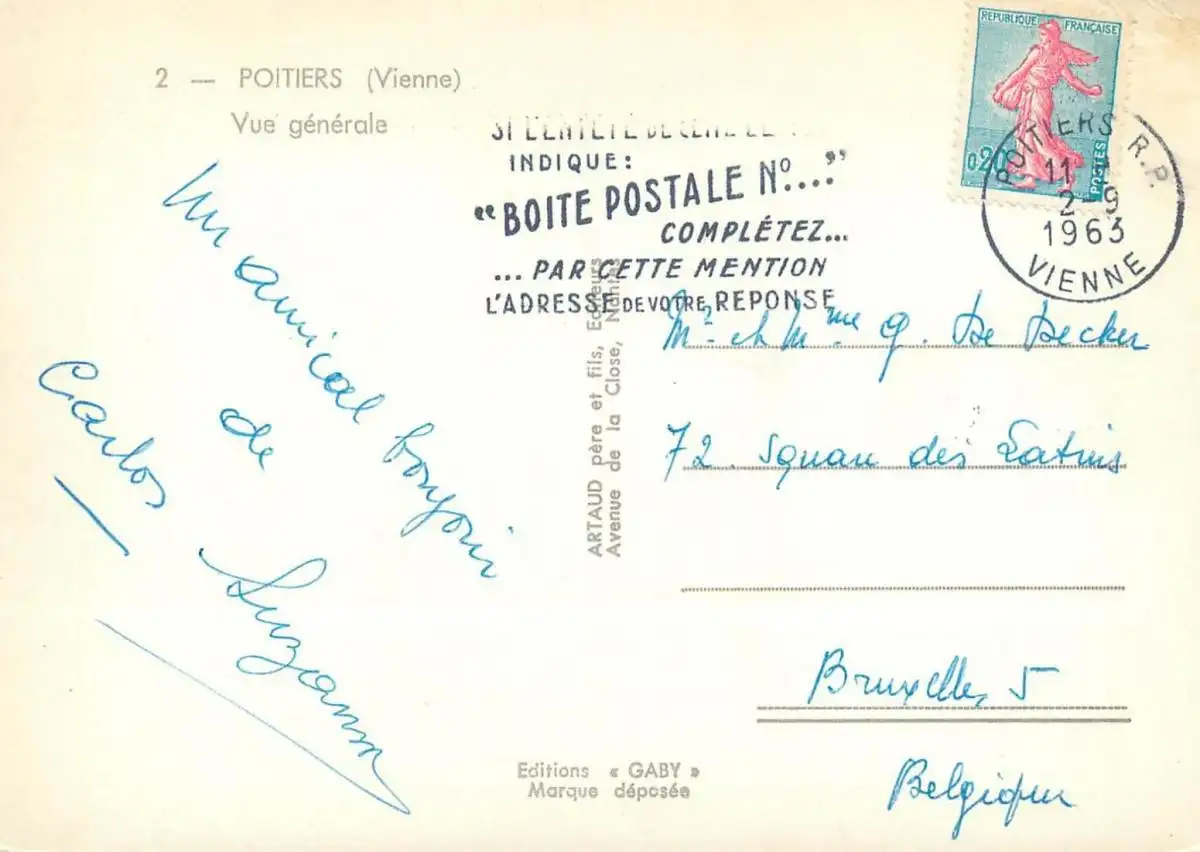 2 — POITIERS (Vienne)
Vue générale
REPUBLIQUE FRANÇAISE
0,20
POSTES
POITIERS R.P.
11
2-9
1963
VIENNE
SI L'ENTETE DE CETTE
INDIQUE:
"BOITE POSTALE No...."
COMPLÉTEZ...
... PAR CETTE MENTION
L'ADRESSE DE VOTRE REPONSE
Un amical bonjour
de
Carlos
Suzanne
ARTAUD père et fils, Editeurs
Avenue de la Close, Nantes
Mr et Mme G. De Decker
72. Square des Latins
Bruxelles 5
Belgique
Editions « GABY »
Marque déposée